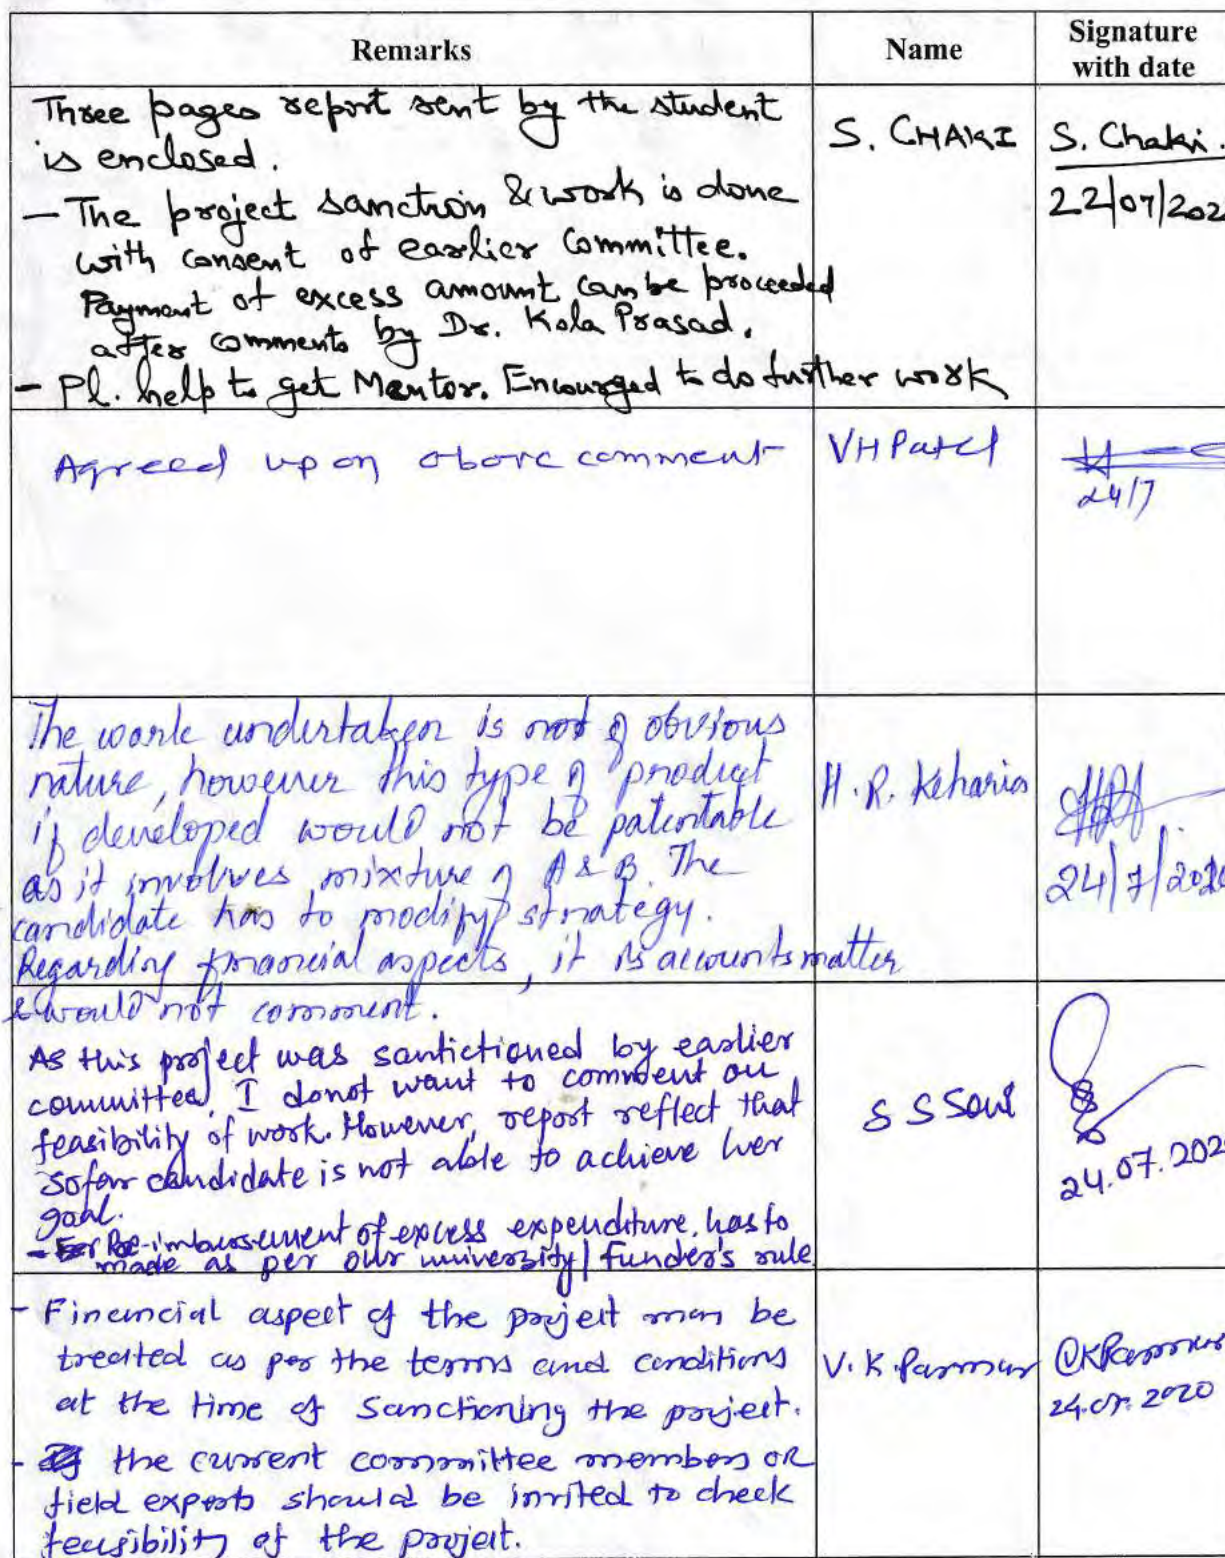 Remarks Name Signature with date
Three pages report sent by the student
is enclosed.
- The project sanction & work is done
with consent of earlier committee.
Payment of excess amount can be proceeded
after comments by Dr. Kola Prasad.
- Pl. help to get Mentor. Encourged to do further work
S. CHAKI
S. Chaki.
22/07/202
Agreed upon above comment
VH Patel
24/7
The work undertaken is not of obvious
nature, however this type of product
if developed would not be patentable
as it involves mixture of A & B. The
candidate has to modify strategy.
Regarding financial aspects, it is accounts matter
& would not comment.
H. R. Keharia
24/7/2020
As this project was santictioned by earlier
committee, I donot want to comment on
feasibility of work. However, report reflect that
sofar candidate is not able to achieve her
goal.
- Re-imbursement of excess expenditure. has to
made as per our university/funder's rule
S S Soni
24.07.202
- Financial aspect of the project may be
treated as per the terms and conditions
at the time of Sanctioning the project.
- the current committee members OR
field experts should be invited to check
feasibility of the project.
V. K. Parmar
VKParmar
24.07.2020